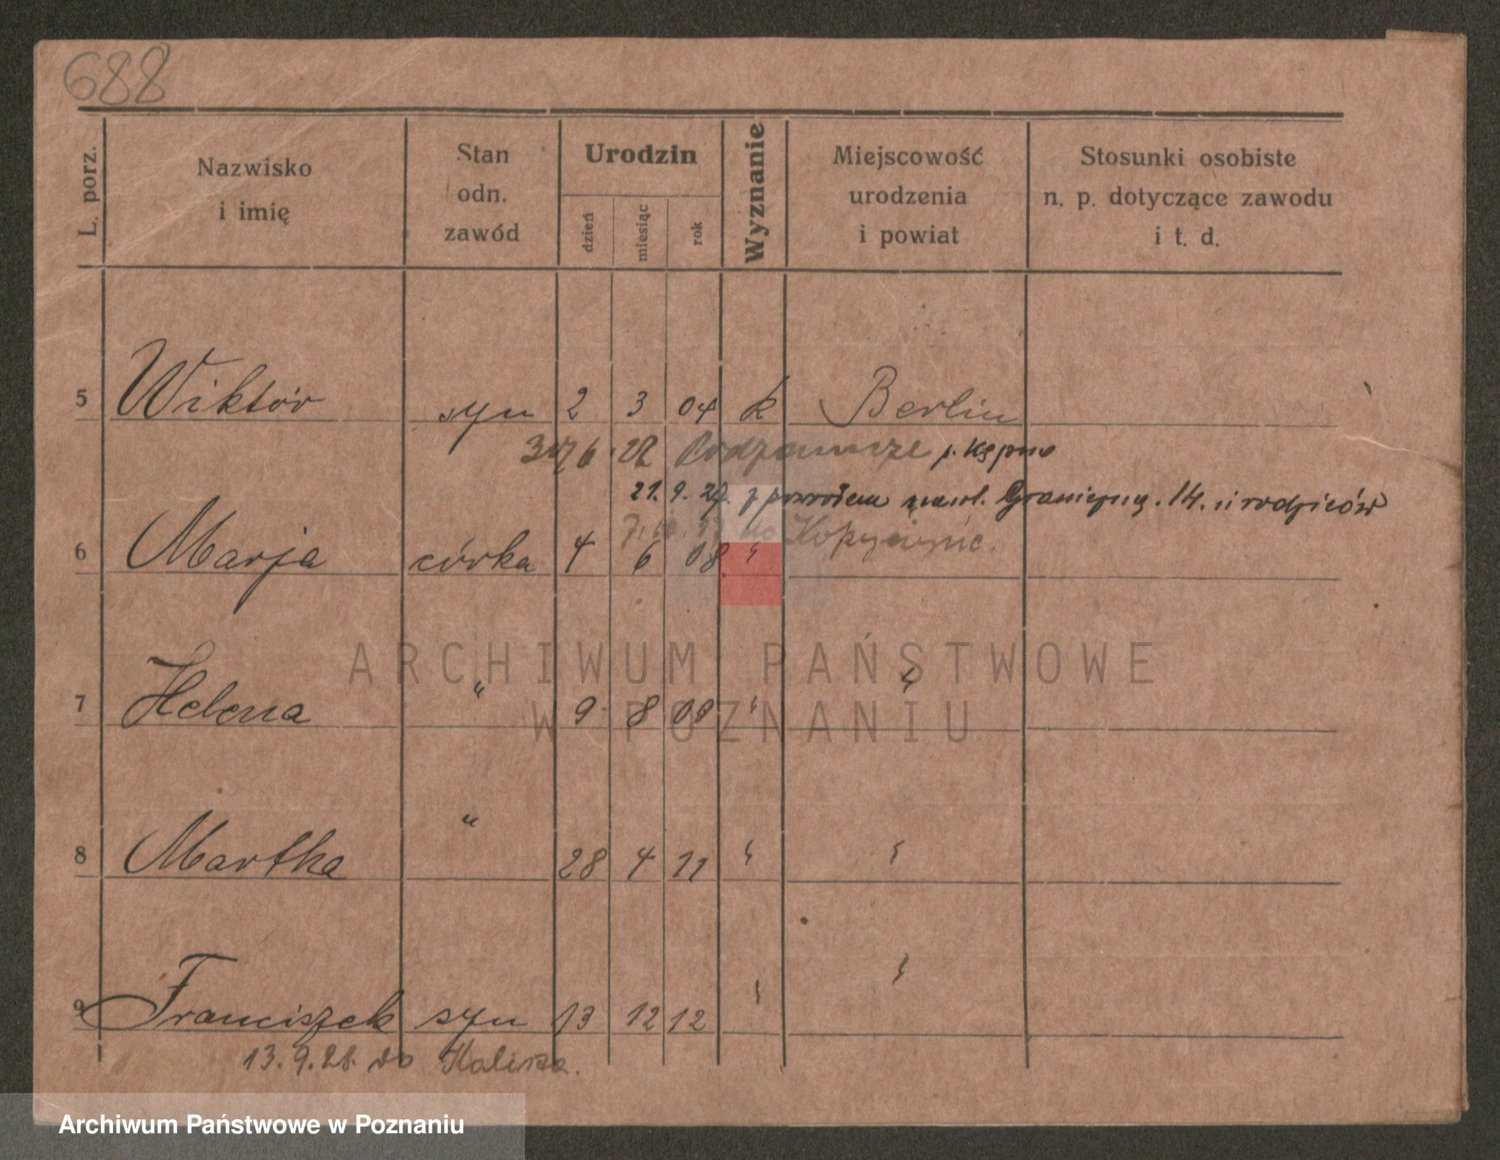 688
L. porz. Nazwisko i imię Stan odn. zawód Urodzin dzień miesiąc rok Wyznanie Miejscowość urodzenia i powiat Stosunki osobiste n. p. dotyczące zawodu i t. d.
5 Wiktór syn 2 3 04 k Berlin
6. 27 p. Kępno
21. 9. 27. z powrotem Graniczną. 14. u rodziców
do
6 Marja córka 4 6 08 "
7 Helena " 9 8 09 " "
ARCHIWUM PAŃSTWOWE
W POZNANIU
8 Martha " 28 4 11 " "
9 Franciszek syn 13 12 12 " "
13. 9. 28. do Kalisza.
Archiwum Państwowe w Poznaniu